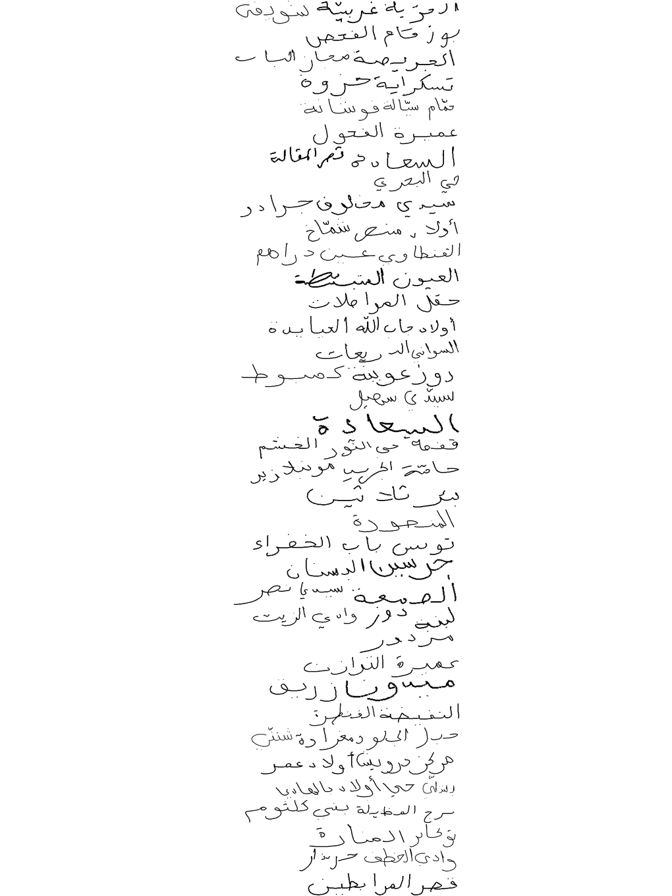 المزية غربيّة
بوز قنام الفحص
العريصة
تسكراية حزوة
حمّام سيّالة فوشانة
عميرة الفحول
السعادة قصر المقالة
حي البحري
سيدي مخلوف جرادر
أولاد منصر شمّاخ
القنطاوي عين دراهم
العيون البسيطة
حقل المراملات
أولاد جاب الله العبايدة
السواني الدريعات
دوز عوينة كمبوط
سيدي سهيل
السعادة
قفصة حي النور القشم
حامّة الجريد مونبلازير
بئر ثلاثين
المسعودة
تونس باب الخضراء
جرسين البستان
الصمعة سيدي نصر
لبنة دوز وادي الزيت
مزدور
عميرة التوازرت
ميدونا زريف
النفيضة القنطرة
جبل الجلود مغراوة شنني
مركز درويش أولاد عمر
حي أولاد بالهادي
برج الطويلة بني كلثوم
توكابر المنارة
وادي الخطف
قصر المرابطين